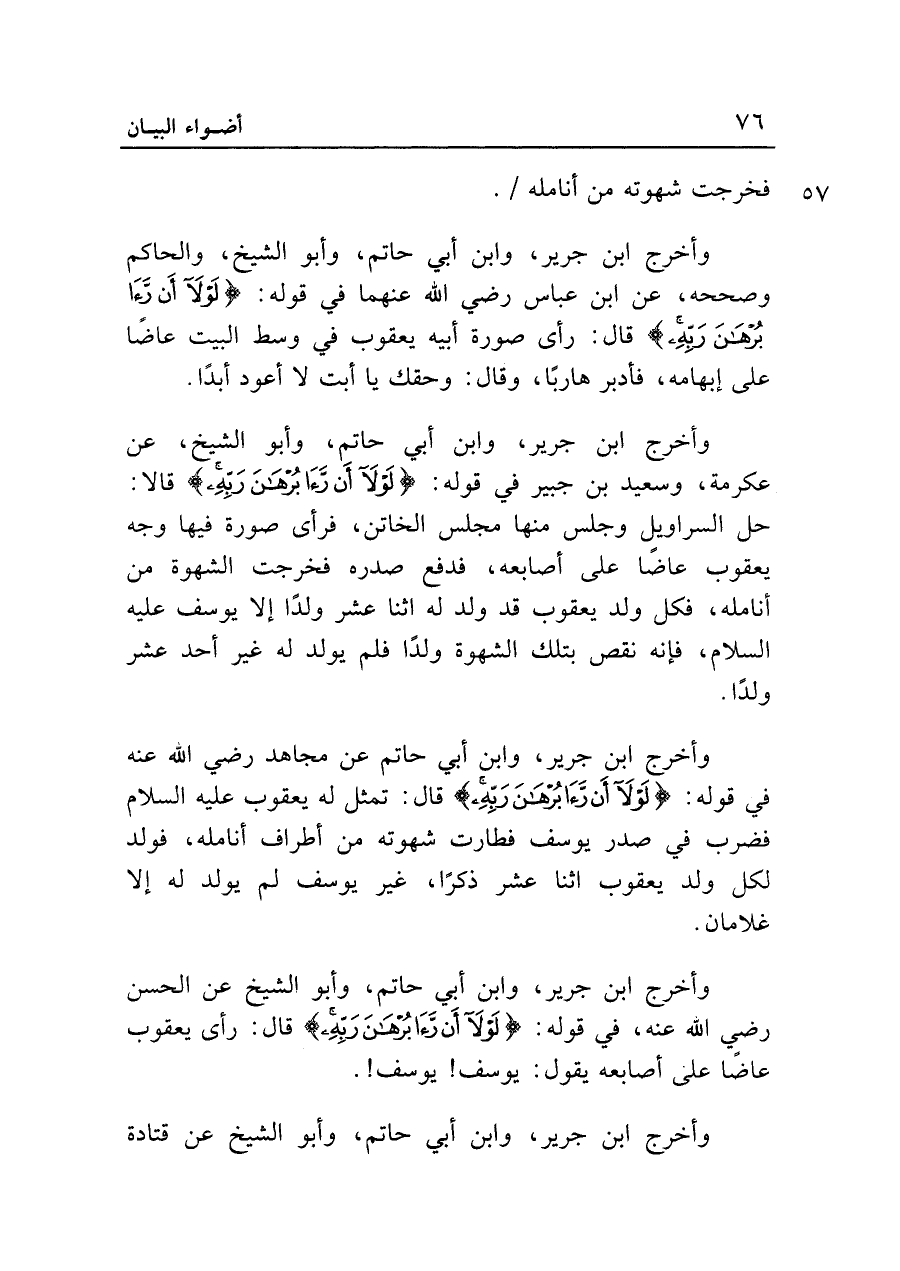 ٧٦ أضواء البيان
٥٧ فخرجت شهوته من أنامله / .
وأخرج ابن جرير، وابن أبي حاتم، وأبو الشيخ، والحاكم
وصححه، عن ابن عباس رضي الله عنهما في قوله: ﴿لَوْلَآ أَن رَّءَا
بُرْهَٰنَ رَبِّهِۦۚ﴾ قال: رأى صورة أبيه يعقوب في وسط البيت عاضًا
على إبهامه، فأدبر هاربًا، وقال: وحقك يا أبت لا أعود أبدًا.
وأخرج ابن جرير، وابن أبي حاتم، وأبو الشيخ، عن
عكرمة، وسعيد بن جبير في قوله: ﴿لَوْلَآ أَن رَّءَا بُرْهَٰنَ رَبِّهِۦۚ﴾ قالا:
حل السراويل وجلس منها مجلس الخاتن، فرأى صورة فيها وجه
يعقوب عاضًا على أصابعه، فدفع صدره فخرجت الشهوة من
أنامله، فكل ولد يعقوب قد ولد له اثنا عشر ولدًا إلا يوسف عليه
السلام، فإنه نقص بتلك الشهوة ولدًا فلم يولد له غير أحد عشر
ولدًا.
وأخرج ابن جرير، وابن أبي حاتم عن مجاهد رضي الله عنه
في قوله: ﴿لَوْلَآ أَن رَّءَا بُرْهَٰنَ رَبِّهِۦۚ﴾ قال: تمثل له يعقوب عليه السلام
فضرب في صدر يوسف فطارت شهوته من أطراف أنامله، فولد
لكل ولد يعقوب اثنا عشر ذكرًا، غير يوسف لم يولد له إلا
غلامان.
وأخرج ابن جرير، وابن أبي حاتم، وأبو الشيخ عن الحسن
رضي الله عنه، في قوله: ﴿لَوْلَآ أَن رَّءَا بُرْهَٰنَ رَبِّهِۦۚ﴾ قال: رأى يعقوب
عاضًا على أصابعه يقول: يوسف! يوسف!.
وأخرج ابن جرير، وابن أبي حاتم، وأبو الشيخ عن قتادة